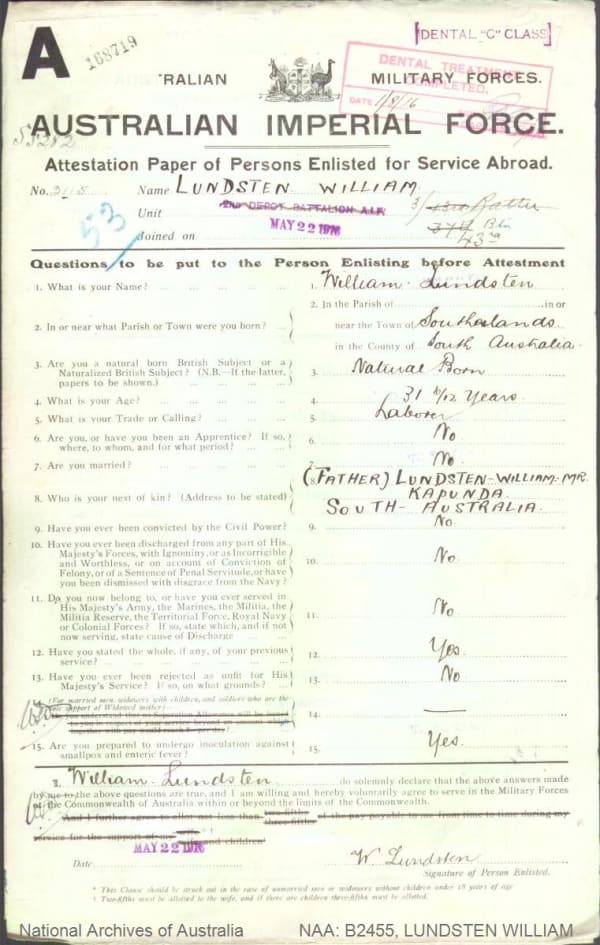 [DENTAL "C" CLASS]
A
168719
DENTAL TREATMENT
COMPLETED.
DATE 1/8/16
TRALIAN MILITARY FORCES.
AUSTRALIAN IMPERIAL FORCE.
Attestation Paper of Persons Enlisted for Service Abroad.
No. 3115 Name LUNDSTEN WILLIAM
Unit 2nd DEPOT BATTALION A.I.F.
43rd Btn
53
Joined on MAY 22 1916
Questions to be put to the Person Enlisting before Attestation
1. What is your Name? ... 1. William Lundsten
2. In or near what Parish or Town were you born? ... 2. In the Parish of in or
near the Town of Southerlands
in the County of South Australia
3. Are you a natural born British Subject or a
Naturalized British Subject? (N.B.—If the latter,
papers to be shown.) ... 3. Natural Born
4. What is your Age? ... 4. 31 10/12 Years
5. What is your Trade or Calling? ... 5. Laborer
6. Are you, or have you been an Apprentice? If so,
where, to whom, and for what period? ... No.
7. Are you married? ... 7. No
8. Who is your next of kin? (Address to be stated) 8. (FATHER) LUNDSTEN-WILLIAM-MR.
KAPUNDA
SOUTH-AUSTRALIA.
9. Have you ever been convicted by the Civil Power? 9. No
10. Have you ever been discharged from any part of His
Majesty's Forces, with Ignominy, or as Incorrigible
and Worthless, or on account of Conviction of
Felony, or of a Sentence of Penal Servitude, or have
you been dismissed with disgrace from the Navy? 10. No
11. Do you now belong to, or have you ever served in
His Majesty's Army, the Marines, the Militia, the
Militia Reserve, the Territorial Force, Royal Navy
or Colonial Forces? If so, state which, and if not
now serving, state cause of Discharge ... 11. No
12. Have you stated the whole, if any, of your previous
service? ... 12. Yes
13. Have you ever been rejected as unfit for His
Majesty's Service? If so, on what grounds? ... 13. No
(For married men, widowers with children, and soldiers who are the
sole support of Widowed mother)—
14. —
15. Are you prepared to undergo inoculation against
smallpox and enteric fever? 15. Yes.
I, William Lundsten do solemnly declare that the above answers made
by me to the above questions are true, and I am willing and hereby voluntarily agree to serve in the Military Forces
of the Commonwealth of Australia within or beyond the limits of the Commonwealth.
And I further agree to allot not less than two-fifths
three-fifths of the pay payable to me from time to time during my
service for the support of my
and children
MAY 22 1916
Date W. Lundsten
Signature of Person Enlisted.
* This Clause should be struck out in the case of unmarried men or widowers without children under 18 years of age
† Two-fifths must be allotted to the wife, and if there are children three-fifths must be allotted.
National Archives of Australia NAA: B2455, LUNDSTEN WILLIAM